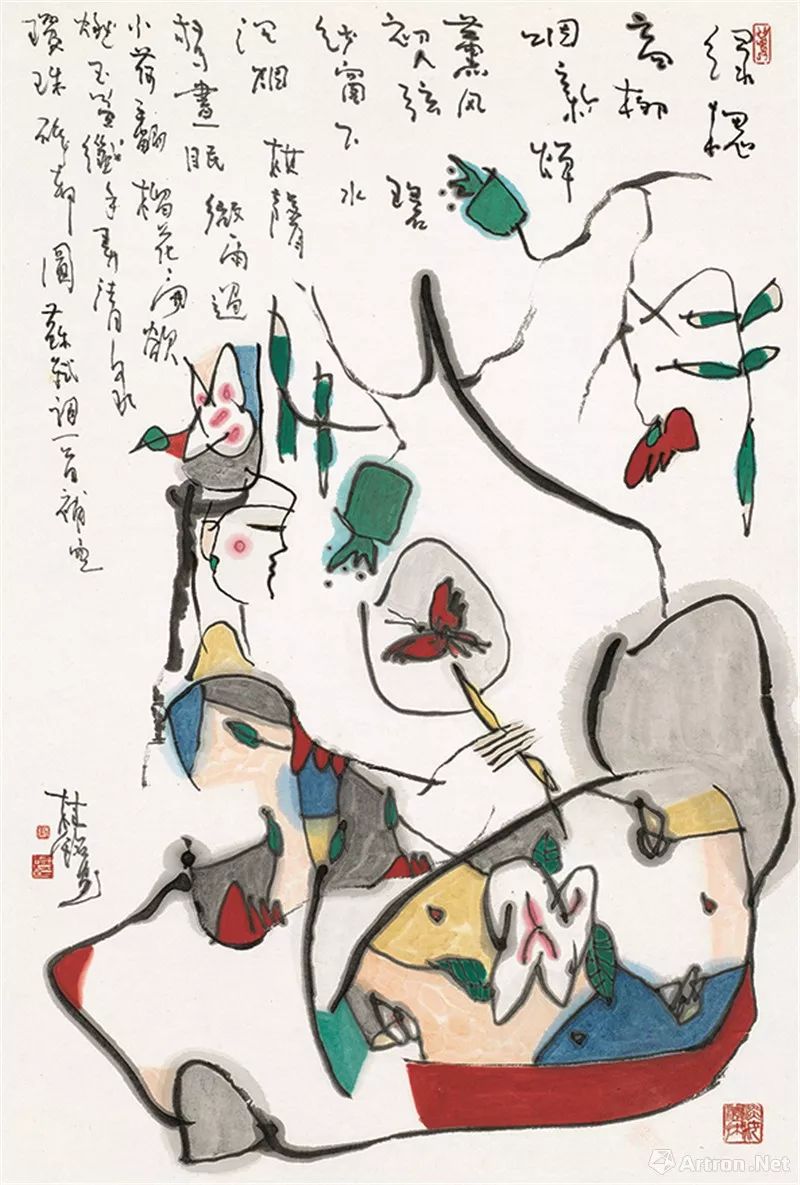 绿槐
高柳
咽新蝉
薰风
初入弦 碧
纱窗下水
沉烟 棋声
惊晝眠 微雨過
小荷翻 榴花开欲
燃玉盆纤手弄清泉
琼珠碎却圓 蘇轼词一首補空
桂铭写
Artron.Net